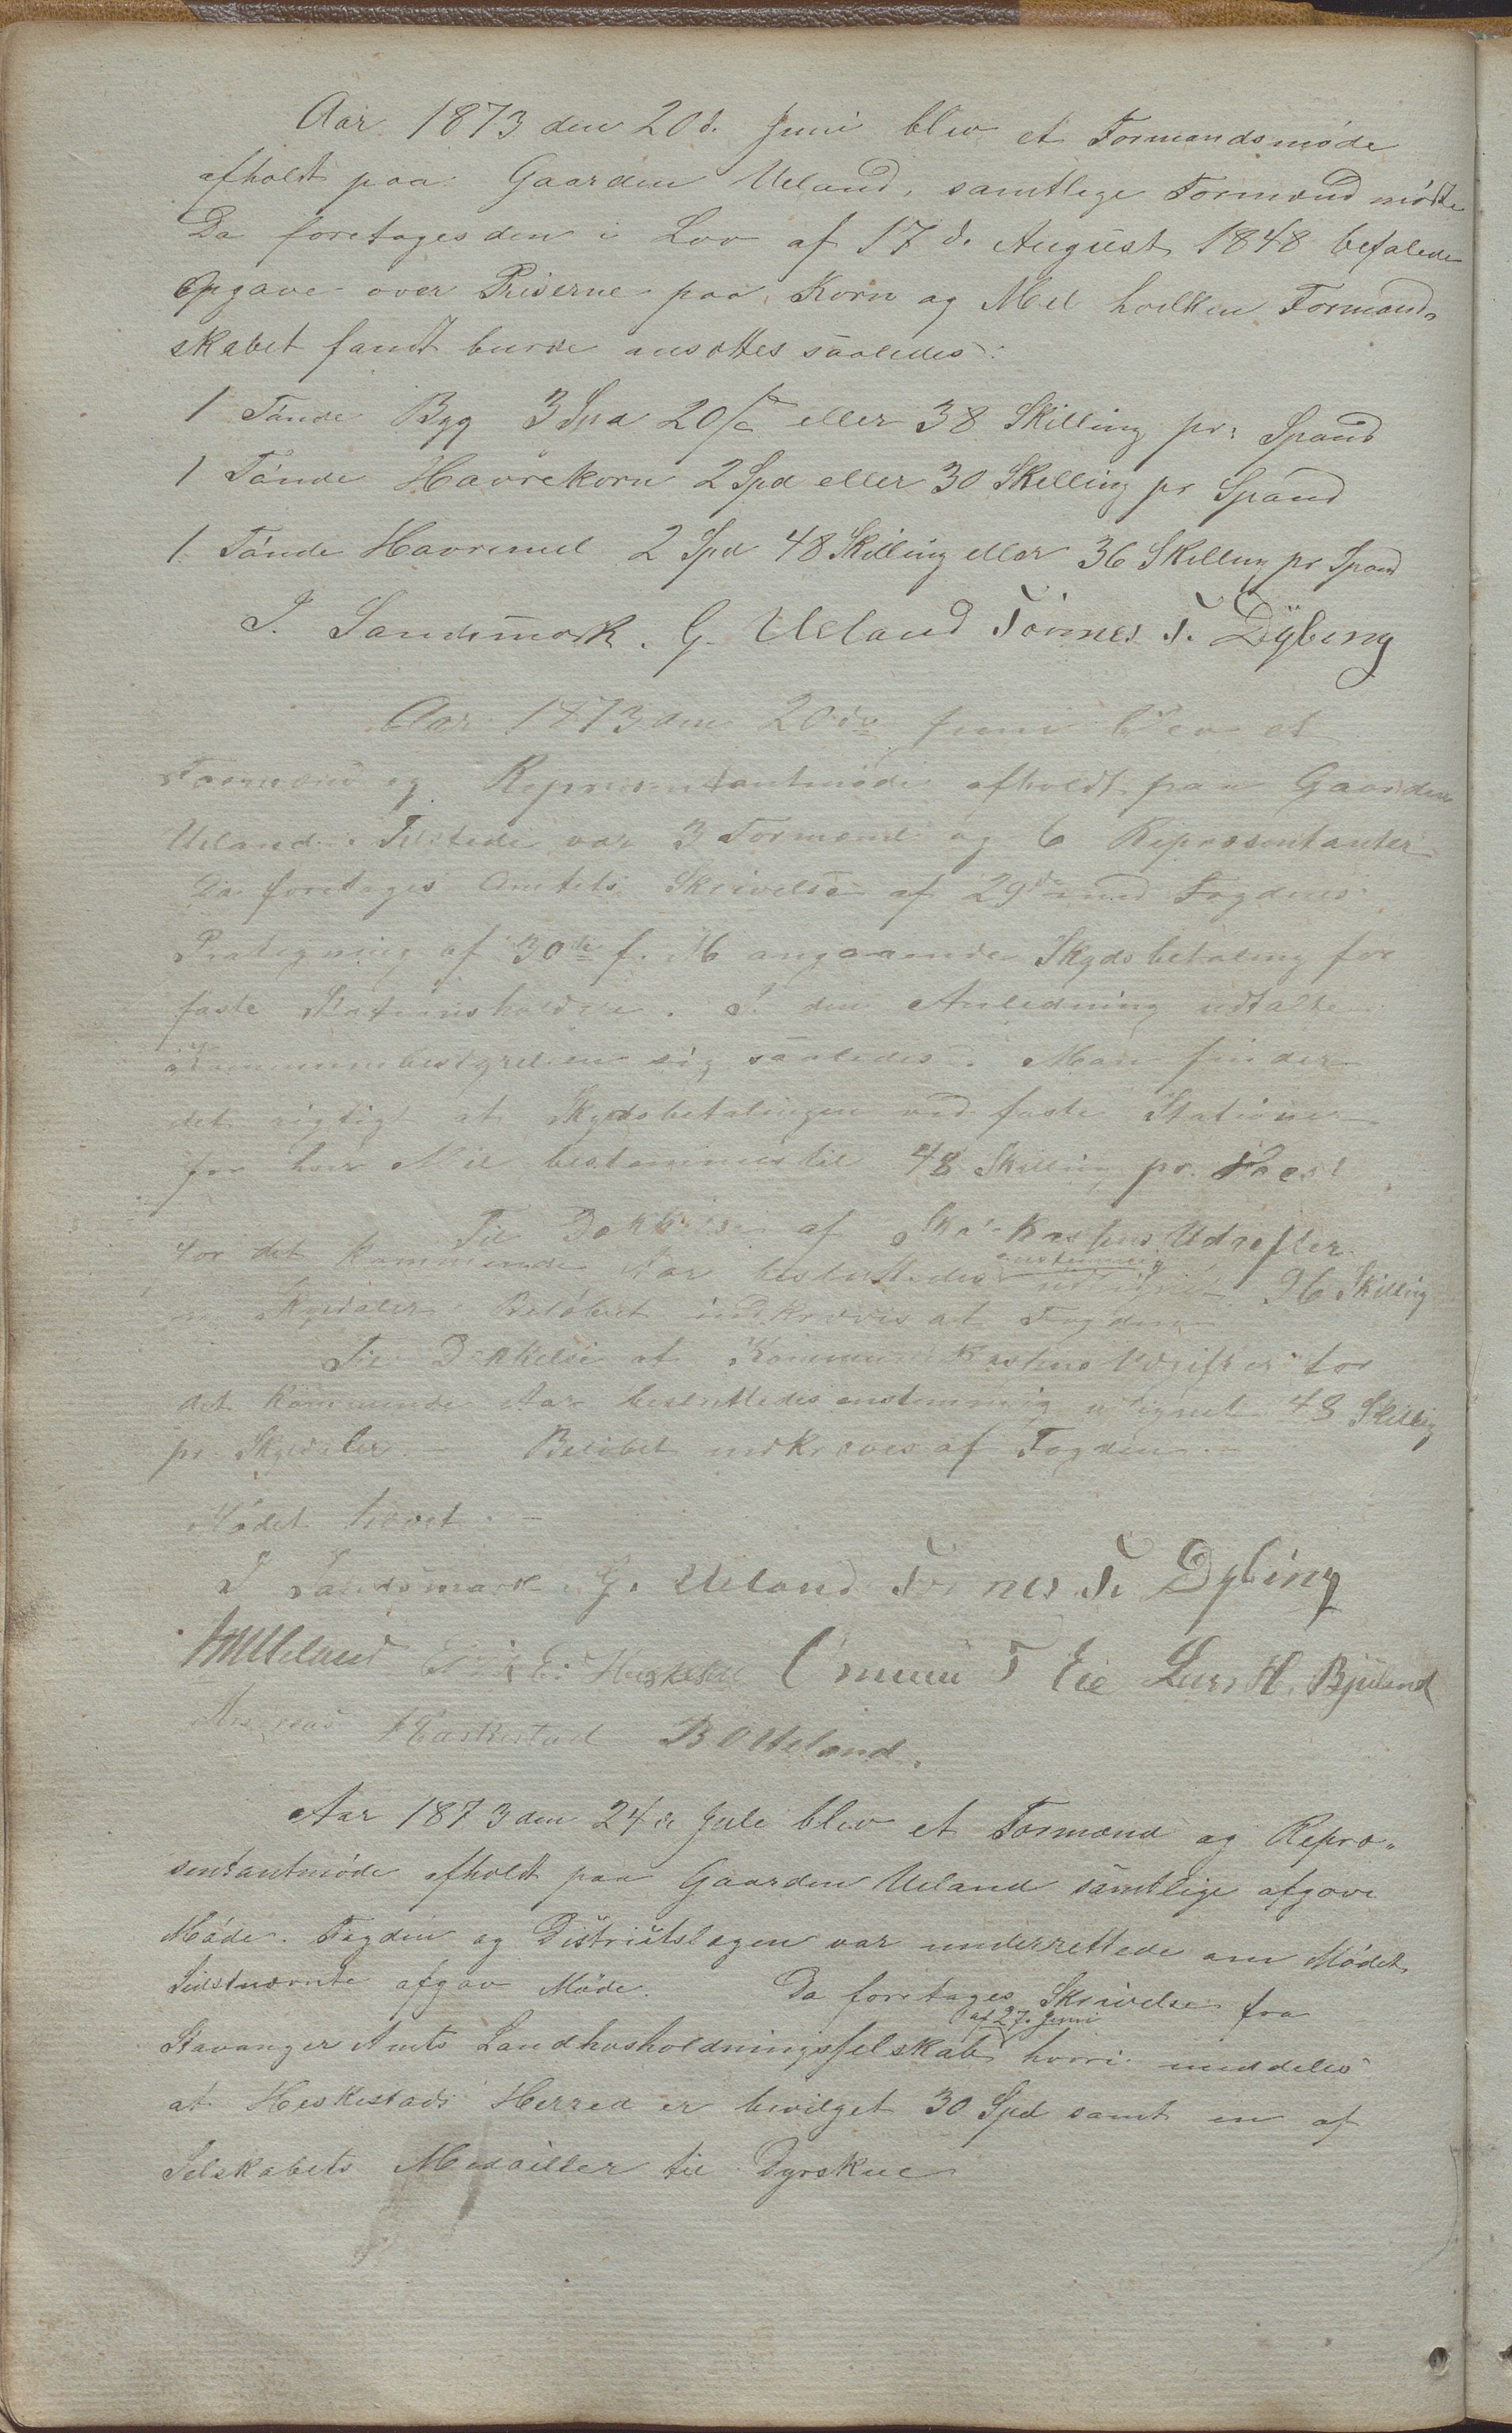 Aar 1873 den 20d. Juni blev et Formandsmøde
afholdt paa Gaarden Ueland, samtlege Formænd mødte
Da foretages den i Lov af 17d. August 1848 befalede
Opgave over Priserne paa Korn og Mel hvilken Formand-
skabet fandt burde ansættes saaledes:
1 Tønde Byg 3 Spd 20 s eller 38 Skilling pr. Spand
1 Tønde Havrekorn 2 Spd eller 30 Skelling pr Spand
1 Tønde Havremel 2 Spd 48 Skilling eller 36 Skelling pr Spand
J. Sandsmark. G. Ueland Tønnes T. Dÿbing
Aar 1873 den 20de Juni blev et
Formænd og Repræsentantmøde afholdt paa Gaarden
Ueland. Tilstede var 3 Formænd og 6 Repræsentanter
Da foretages Amtets Skrivelse af 29de med Fogdens
Paategning af 30te f. M angaaende Skydsbetaling for
faste Stationsholdere. I den Anledning udtalte
Kommunebestyrelsen sig saaledes. Man finder
det rigtigt at Skydsbetalingen ved faste Stationer
for hver Mil bestemmes til 48 Skilling pr. Hæst
Til Dækkelse af Skolekassens Udgifter
for det kommende Aar besluttedes enstemmig udlignet 96 Skilling
pr Skyldaler Beløbet indkræves af Fogden
Til Dækkelse af Kommunekassens Udgifter for
det kommende Aar besluttedes enstemmig udlignet 48 Skilling
pr. Skyldaler. – Beløbet indkræves af Fogden. –
Mødet hævet. –
J Sandsmark. G. Ueland Tønnes T. Dybing
Ueland Erik E. Heskestad Omund T Eie Lars H. Bjuland
Andreas Heskestad B O Ueland.
Aar 1873 den 24de Juli blev et Formænd og Repræ-
sentantmøde afholdt paa Gaarden Ueland samtlige afgave
Møde. Fogden og Districtslægen var underrettede om Mødet,
Sidstnævnte afgav Møde. Da foretages Skrivelse fra
Stavanger Amts Landhusholdningsselskab af 27. Juni hvori meddeles
at Heskestads Herred er bevilget 30 Spd samt en af
Selskabets Medailler til Dyrskue